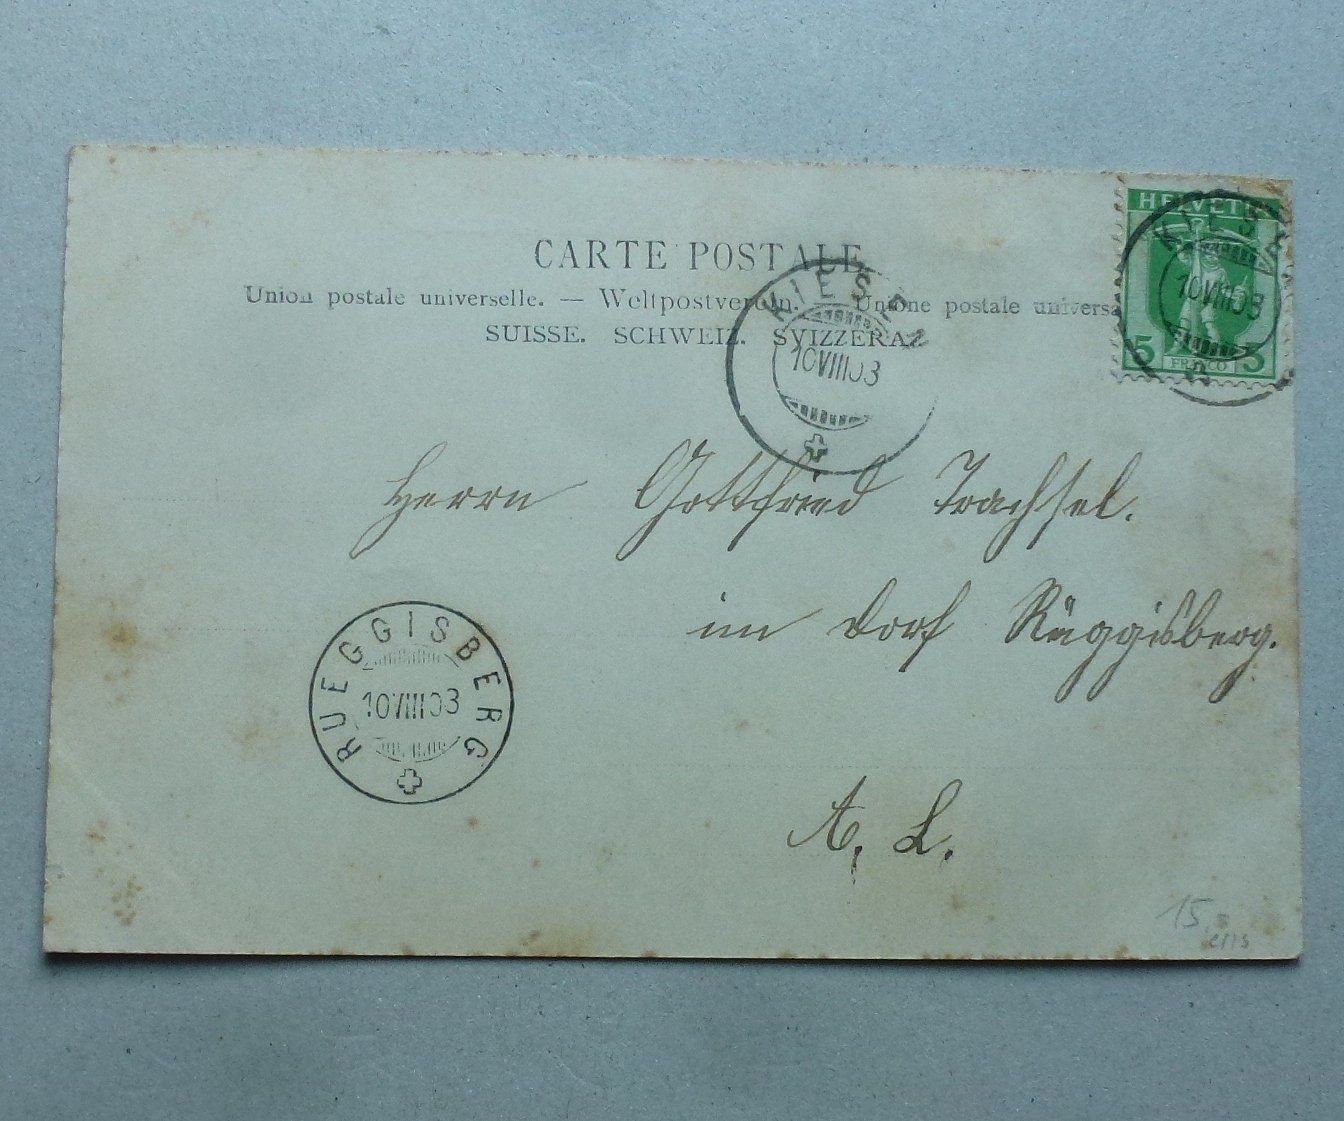 CARTE POSTALE
Union postale universelle. — Weltpostverein. Unione postale universa
SUISSE. SCHWEIZ. SVIZZERA
HELVETIA
5 FRANCO 5
KIESEN
10 VIII 03
KIESEN
10 VIII 03
Herrn Gottfried Trachsel.
im Dorf Rüggisberg.
RUEGGISBERG
10 VIII 03
A. L.
15.